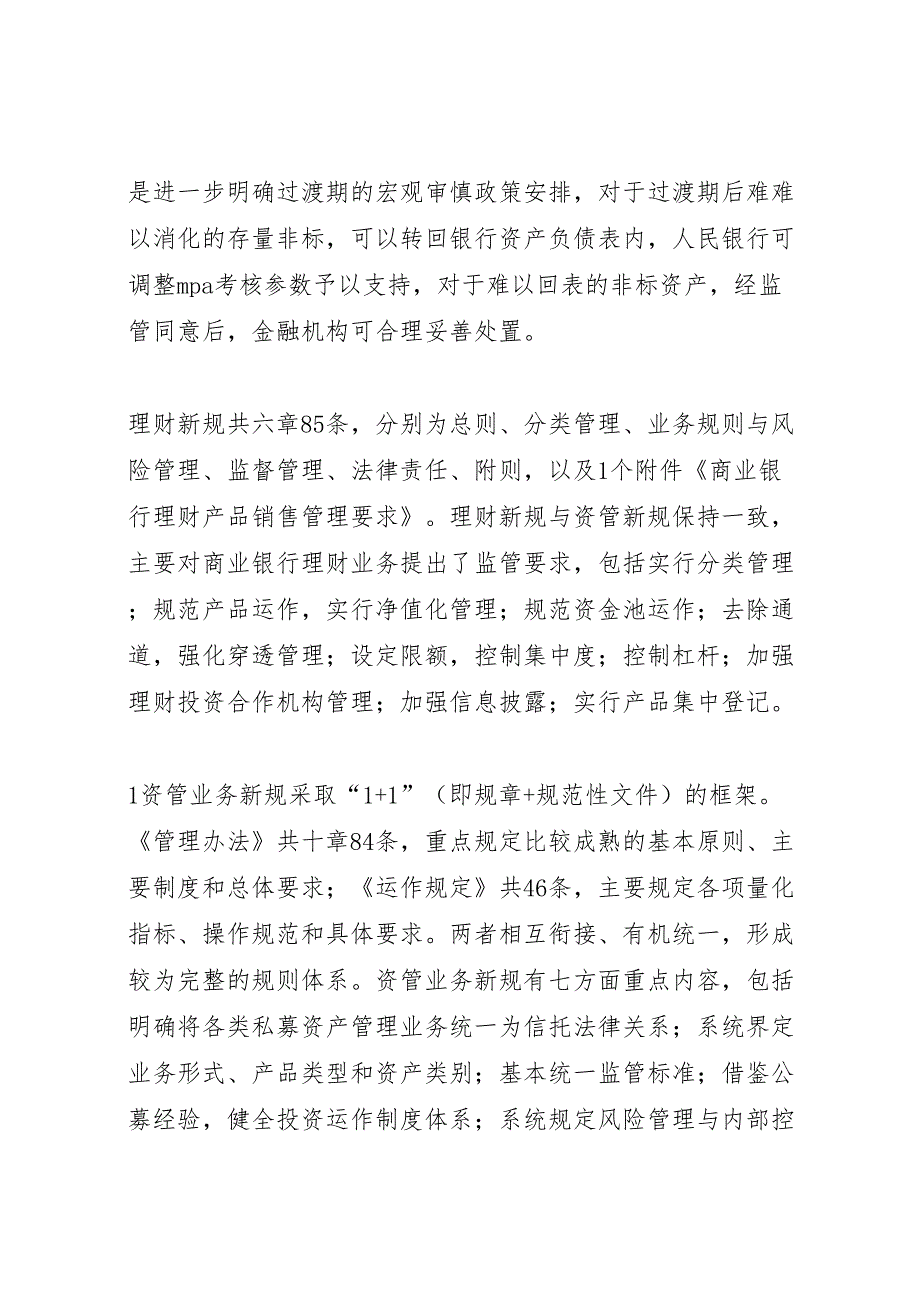 是进一步明确过渡期的宏观审慎政策安排，对于过渡期后难难
以消化的存量非标，可以转回银行资产负债表内，人民银行可
调整mpa考核参数予以支持，对于难以回表的非标资产，经监
管同意后，金融机构可合理妥善处置。
理财新规共六章85条，分别为总则、分类管理、业务规则与风
险管理、监督管理、法律责任、附则，以及1个附件《商业银
行理财产品销售管理要求》。理财新规与资管新规保持一致，
主要对商业银行理财业务提出了监管要求，包括实行分类管理
；规范产品运作，实行净值化管理；规范资金池运作；去除通
道，强化穿透管理；设定限额，控制集中度；控制杠杆；加强
理财投资合作机构管理；加强信息披露；实行产品集中登记。
1资管业务新规采取“1+1”（即规章+规范性文件）的框架。
《管理办法》共十章84条，重点规定比较成熟的基本原则、主
要制度和总体要求；《运作规定》共46条，主要规定各项量化
指标、操作规范和具体要求。两者相互衔接、有机统一，形成
较为完整的规则体系。资管业务新规有七方面重点内容，包括
明确将各类私募资产管理业务统一为信托法律关系；系统界定
业务形式、产品类型和资产类别；基本统一监管标准；借鉴公
募经验，健全投资运作制度体系；系统规定风险管理与内部控